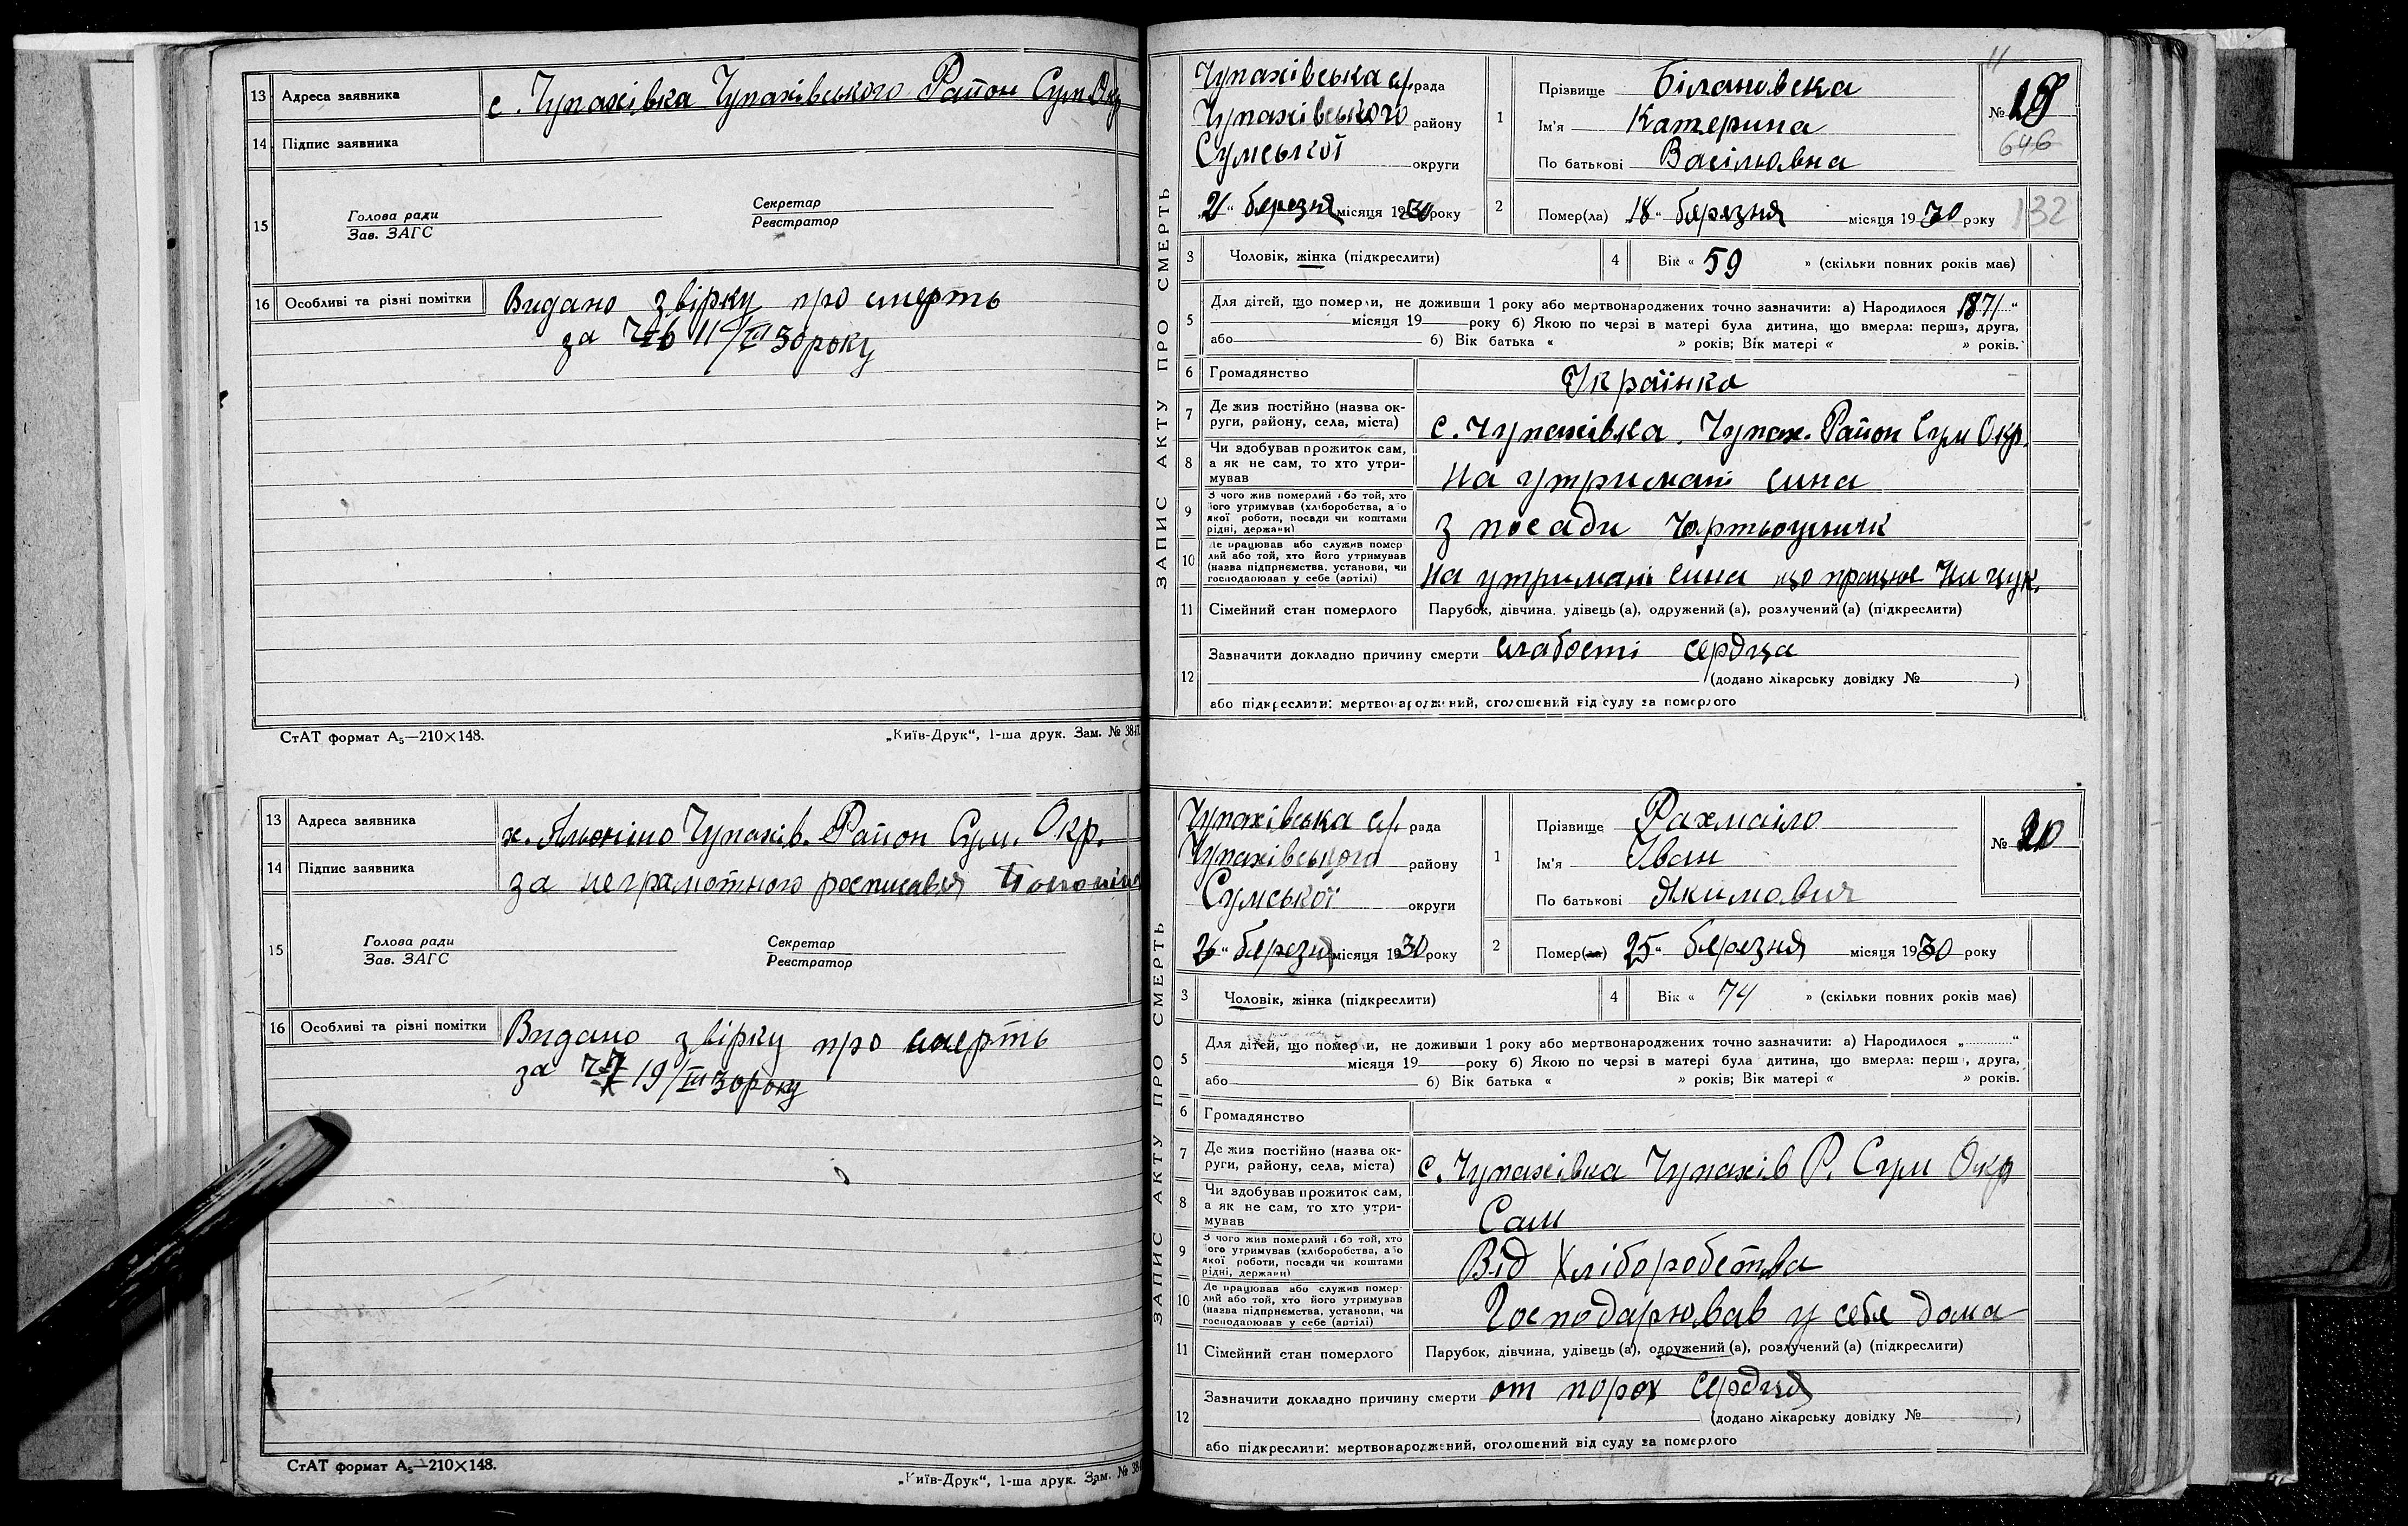 13 Адреса заявника с. Чупахівка Чупахівського Район Сум Окр
14 Підпис заявника
15 Голова ради Секретар
Зав. ЗАГС Реєстратор
16 Особливі та різні помітки Видано звірку про смерть
за 11/III 30 року
СтАТ формат А₅—210×148. „Київ-Друк“, 1-ша друк. Зам. №
13 Адреса заявника Чупахів. Район Сум. Окр.
14 Підпис заявника за неграмотного росписався
15 Голова ради Секретар
Зав. ЗАГС Реєстратор
16 Особливі та різні помітки Видано звірку про смерть
за 19/III 30 року
СтАТ формат А₅—210×148.
„Київ-Друк“, 1-ша друк. Зам. №
ЗАПИС АКТУ ПРО СМЕРТЬ
11
Чупахівська с/. рада
Чупахівського району
Сумської округи
21 „ березня місяця 1930 року
1 Прізвище Білановська
Ім'я Катерина
По батькові Васілювна
№ 19
646
2 Помер(ла) 18 „ березня місяця 1930 року 132
3 Чоловік, жінка (підкреслити) 4 Вік « 59 » (скільки повних років має)
5 Для дітей, що померли, не доживши 1 року або мертвонароджених точно зазначити: а) Народилося 1871 “
місяця 19 року б) Якою по черзі в матері була дитина, що вмерла: перша, друга,
або б) Вік батька « » років; Вік матері « » років.
6 Громадянство Українка
7 Де жив постійно (назва округи, району, села, міста) с. Чупахівка. Чупах. Район Сум Окр.
8 Чи здобував прожиток сам, а як не сам, то хто утримував На утримані сина
9 З чого жив померлий або той, хто його утримував (хліборобства, або якої роботи, посади чи коштами рідні, держави) з посади
10 Де працював або служив померлий або той, хто його утримував (назва підприємства, установи, чи господарював у себе (артілі) На утримані сина що працює На цук.
11 Сімейний стан померлого Парубок, дівчина, удівець (а), одружений (а), розлучений (а) (підкреслити)
12 Зазначити докладно причину смерти слабості сердца
(додано лікарську довідку № )
або підкреслити: мертвонароджений, оголошений від суду за померлого
ЗАПИС АКТУ ПРО СМЕРТЬ
Чупахівська с/. рада
Чупахівського району
Сумської округи
26 „ березня місяця 1930 року
1 Прізвище Рахмаіло
Ім'я Іван
По батькові Якимович
№ 20
2 Помер(ла) 25 „ березня місяця 1930 року
3 Чоловік, жінка (підкреслити) 4 Вік « 74 » (скільки повних років має)
5 Для дітей, що померли, не доживши 1 року або мертвонароджених точно зазначити: а) Народилося „ “
місяця 19 року б) Якою по черзі в матері була дитина, що вмерла: перш , друга,
або б) Вік батька « » років; Вік матері « » років.
6 Громадянство
7 Де жив постійно (назва округи, району, села, міста) с. Чупахівка Чупахів Р. Сум Окр
8 Чи здобував прожиток сам, а як не сам, то хто утримував Сам
9 З чого жив померлий або той, хто його утримував (хліборобства, або якої роботи, посади чи коштами рідні, держави) Від Хліборобства
10 Де працював або служив померлий або той, хто його утримував (назва підприємства, установи, чи господарював у себе (артілі) Господарював у себе дома
11 Сімейний стан померлого Парубок, дівчина, удівець (а), одружений (а), розлучений (а) (підкреслити)
12 Зазначити докладно причину смерти от порок сердця
(додано лікарську довідку № )
або підкреслити: мертвонароджений, оголошений від суду за померлого